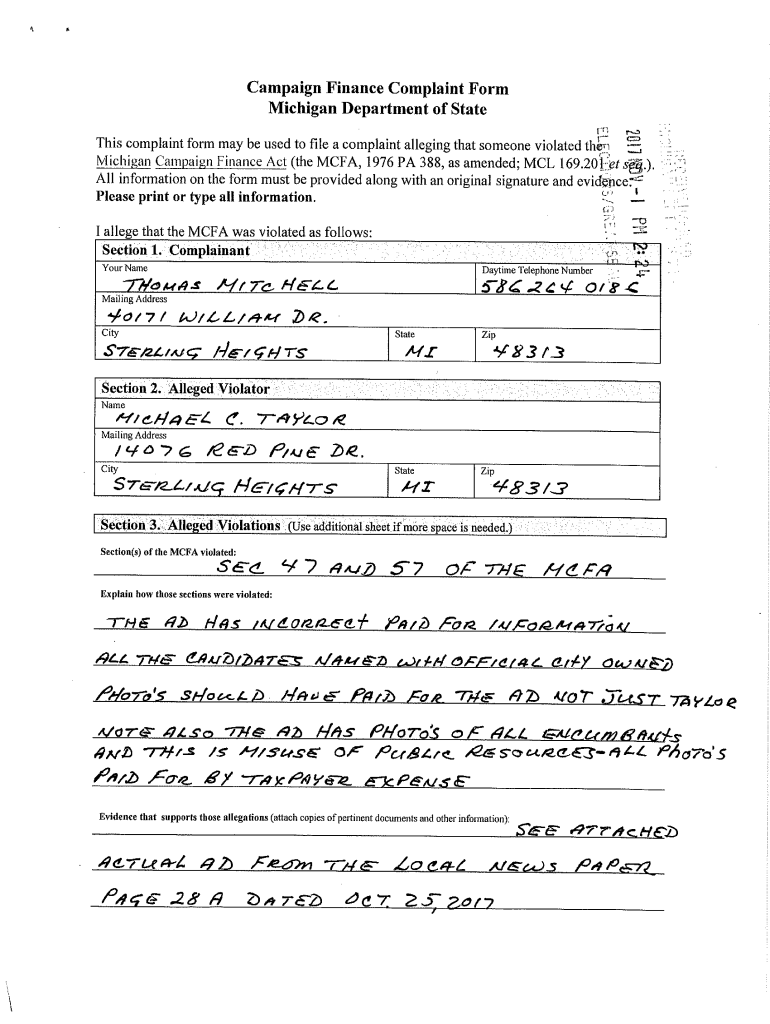 Campaign Finance Complaint Form
Michigan Department of State
This complaint form may be used to file a complaint alleging that someone violated the
Michigan Campaign Finance Act (the MCFA, 1976 PA 388, as amended; MCL 169.201 et seq.).
All information on the form must be provided along with an original signature and evidence.
Please print or type all information.
2017 NOV -1 PM 2:24
I allege that the MCFA was violated as follows:
Section 1. Complainant
Your Name Daytime Telephone Number
THOMAS MITCHELL 586 264 018
Mailing Address
40171 WILLIAM DR.
City State Zip
STERLING HEIGHTS MI 48313
Section 2. Alleged Violator
Name
MICHAEL C. TAYLOR
Mailing Address
14076 RED PINE DR.
City State Zip
STERLING HEIGHTS MI 48313
Section 3. Alleged Violations (Use additional sheet if more space is needed.)
Section(s) of the MCFA violated:
SEC 47 AND 57 OF THE MCFA
Explain how those sections were violated:
THE AD HAS INCORRECT PAID FOR INFORMATION
ALL THE CANDIDATES NAMED WITH OFFICIAL CITY OWNED
PHOTO'S SHOULD HAVE PAID FOR THE AD NOT JUST TAYLOR
NOTE ALSO THE AD HAS PHOTO'S OF ALL ENCUMBANTS
AND THIS IS MISUSE OF PUBLIC RESOURCES-ALL PHOTO'S
PAID FOR BY TAXPAYER EXPENSE
Evidence that supports those allegations (attach copies of pertinent documents and other information):
SEE ATTACHED
ACTUAL AD FROM THE LOCAL NEWS PAPER
PAGE 28 A DATED OCT. 25, 2017